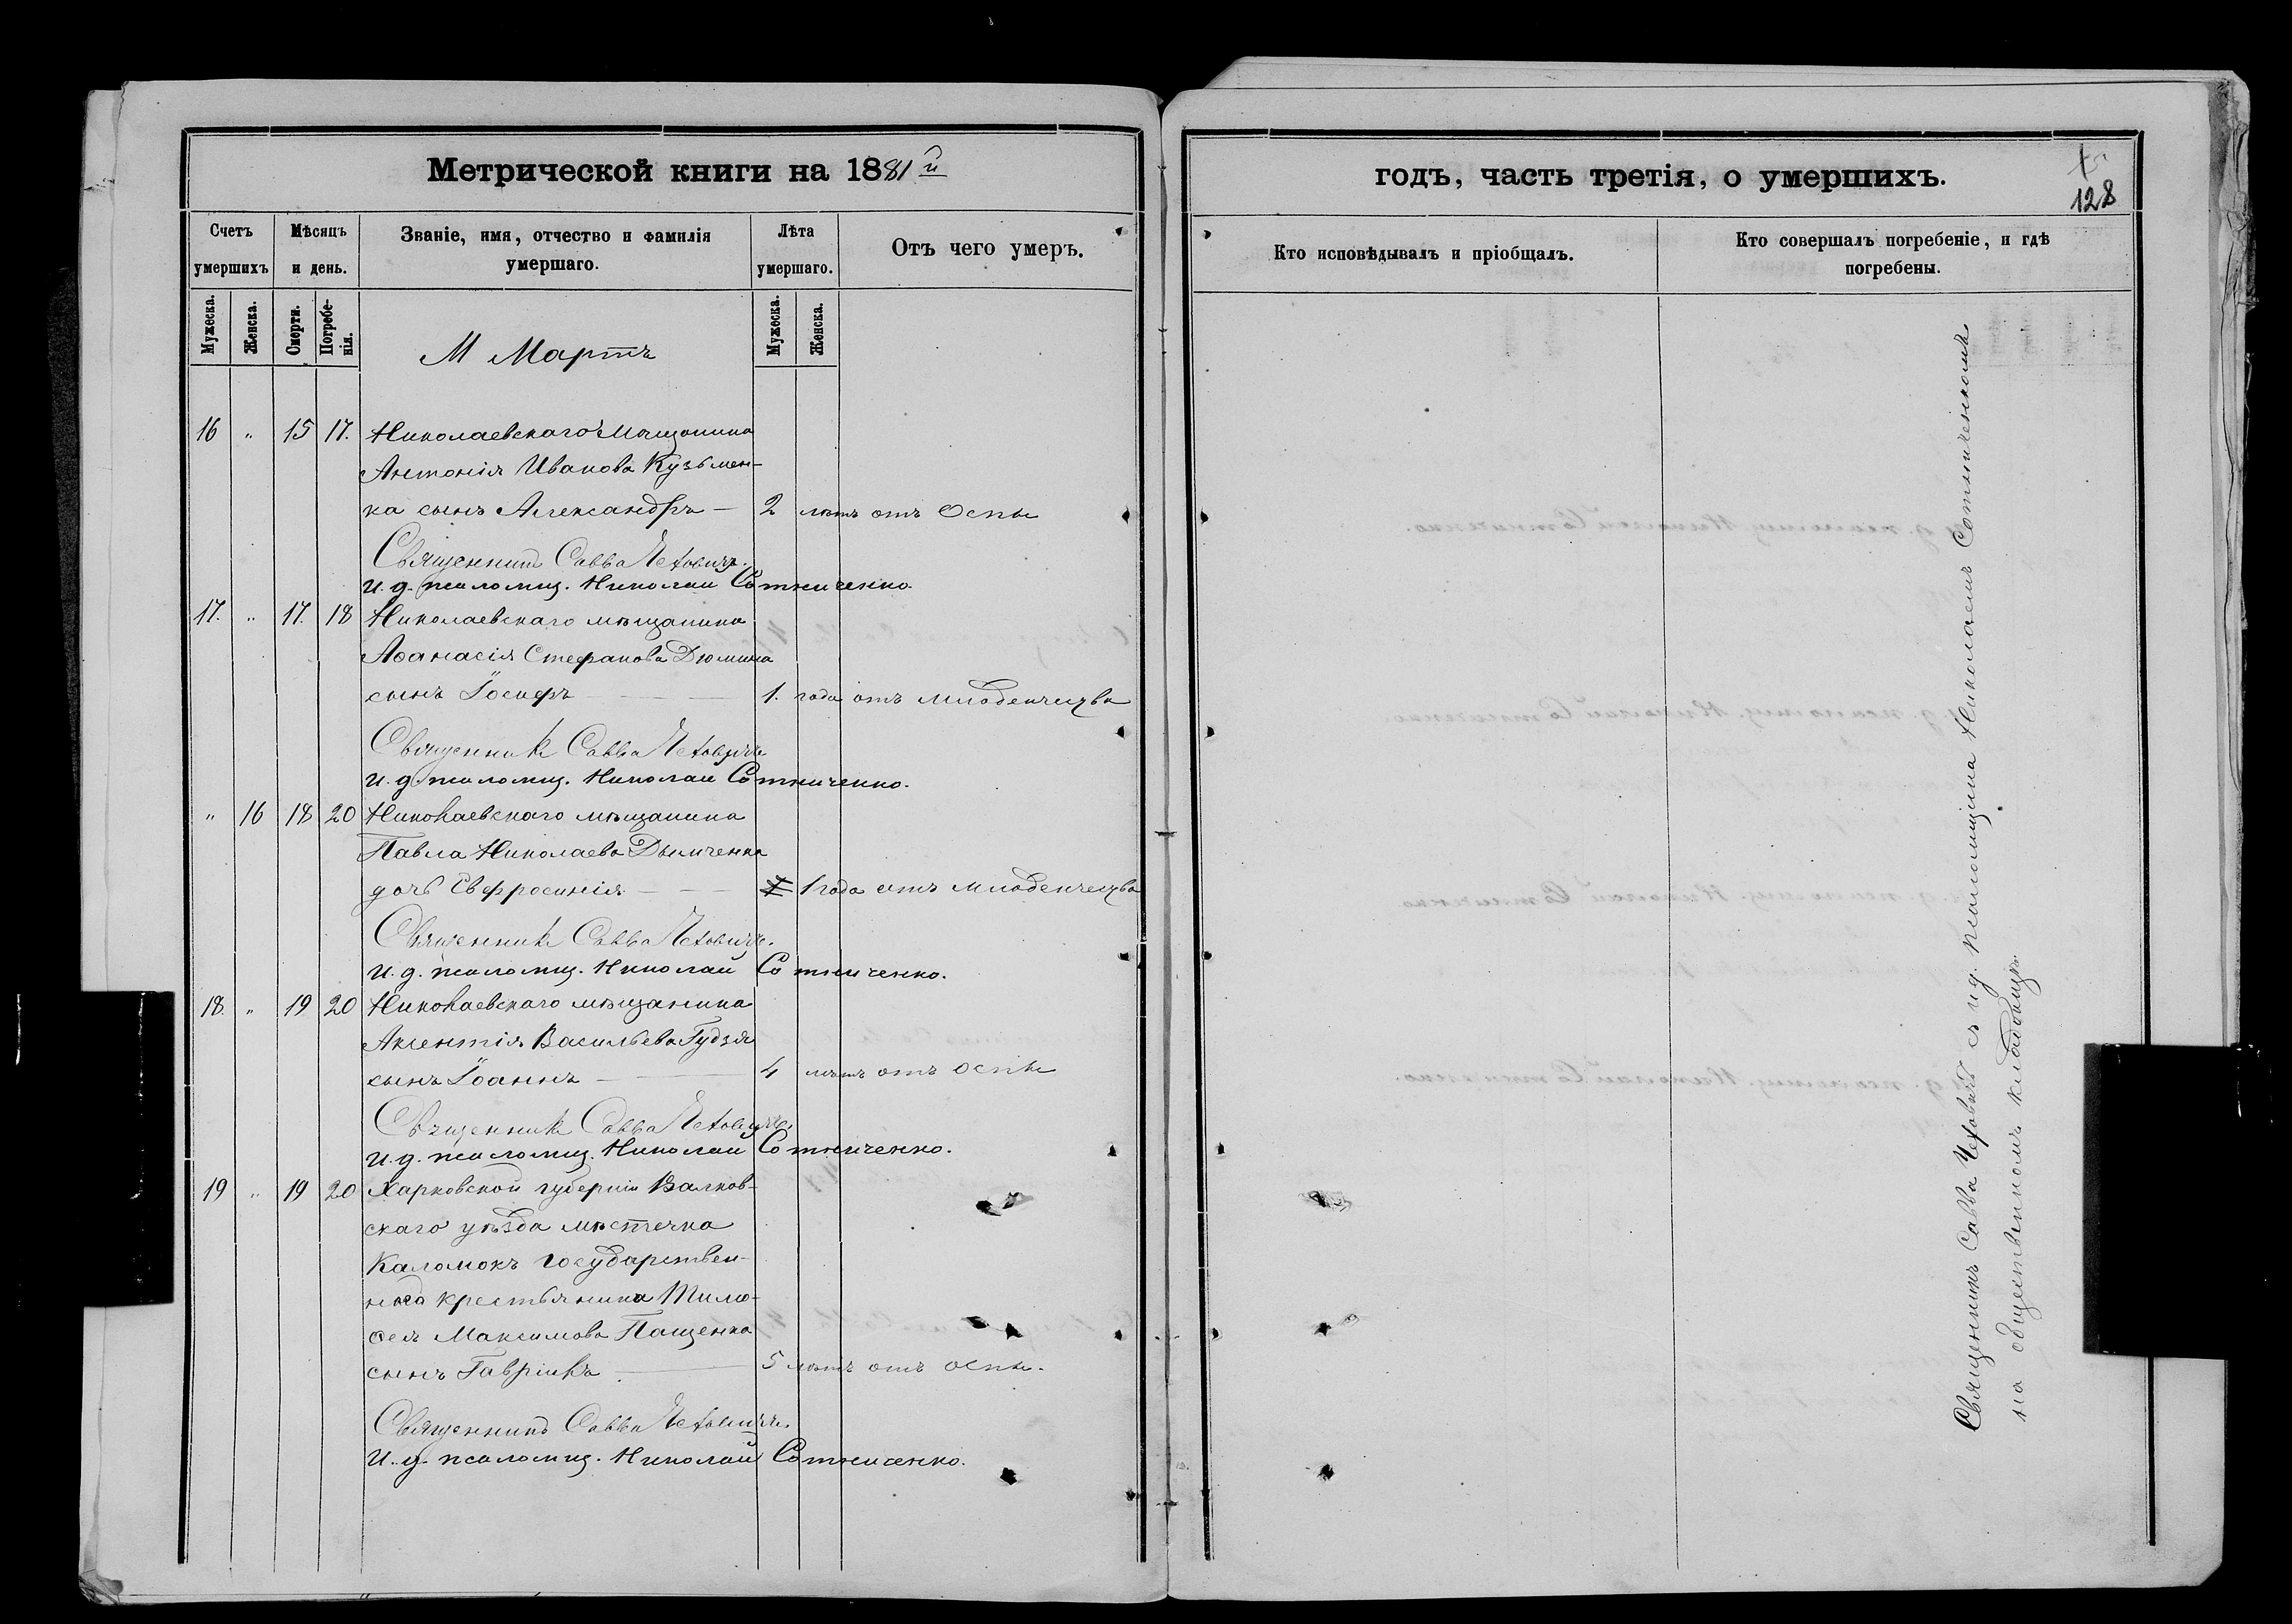 Метрической книги на 1881й
Счетъ умершихъ
Мѣсяцъ и день.
Званіе, имя, отчество и фамилія умершаго.
Лѣта умершаго.
Отъ чего умеръ.
Мужеска.
Женска.
Смерти.
Погребе-
нія.
Мужеска.
Женска.
М Мартъ
16 " 15 17. Николаевскаго Мѣщанина
Антонія Иванова Кузьмен-
ка сынъ Александръ — 2 лѣтъ отъ Оспы
Священникъ Савва Чеховичъ.
И. д. псаломщ. Николай Сотниченко.
17. " 17. 18 Николаевскаго мѣщанина
Аѳанасія Стефанова Дюмина
сынъ Іосифъ — 1. года отъ младенчества
Священникъ Савва Чеховичъ
И. д. псаломщ. Николай Сотниченко.
" 16 18 20 Николаевскаго мѣщанина
Павла Николаева Дымченка
дочь Евфросинія — 1 года отъ младенчества
Священникъ Савва Чеховичъ.
И. д. псаломщ. Николай Сотниченко.
18. " 19 20 Николаевскаго мѣщанина
Аксентія Васильева Гудзя
сынъ Іоаннъ — 4 лѣтъ отъ оспы
Священникъ Савва Чеховичъ.
И. д. псаломщ. Николай Сотниченко.
19 " 19 20 Харковской губерніи Валков-
скаго уѣзда мѣстечка
Каломокъ государствен-
наго крестьянина Тимо-
ѳея Максимова Пащенка
сынъ Гавріилъ — 5 лѣтъ отъ оспы.
Священникъ Савва Чеховичъ.
И. д. псаломщ. Николай Сотниченко.
годъ, часть третія, о умершихъ.
128
Кто исповѣдывалъ и пріобщалъ.
Кто совершалъ погребеніе, и гдѣ
погребены.
Священникъ Савва Чеховичъ съ и.д. псаломщика Николаемъ Сотниченкомъ
на общественномъ кладбищѣ.